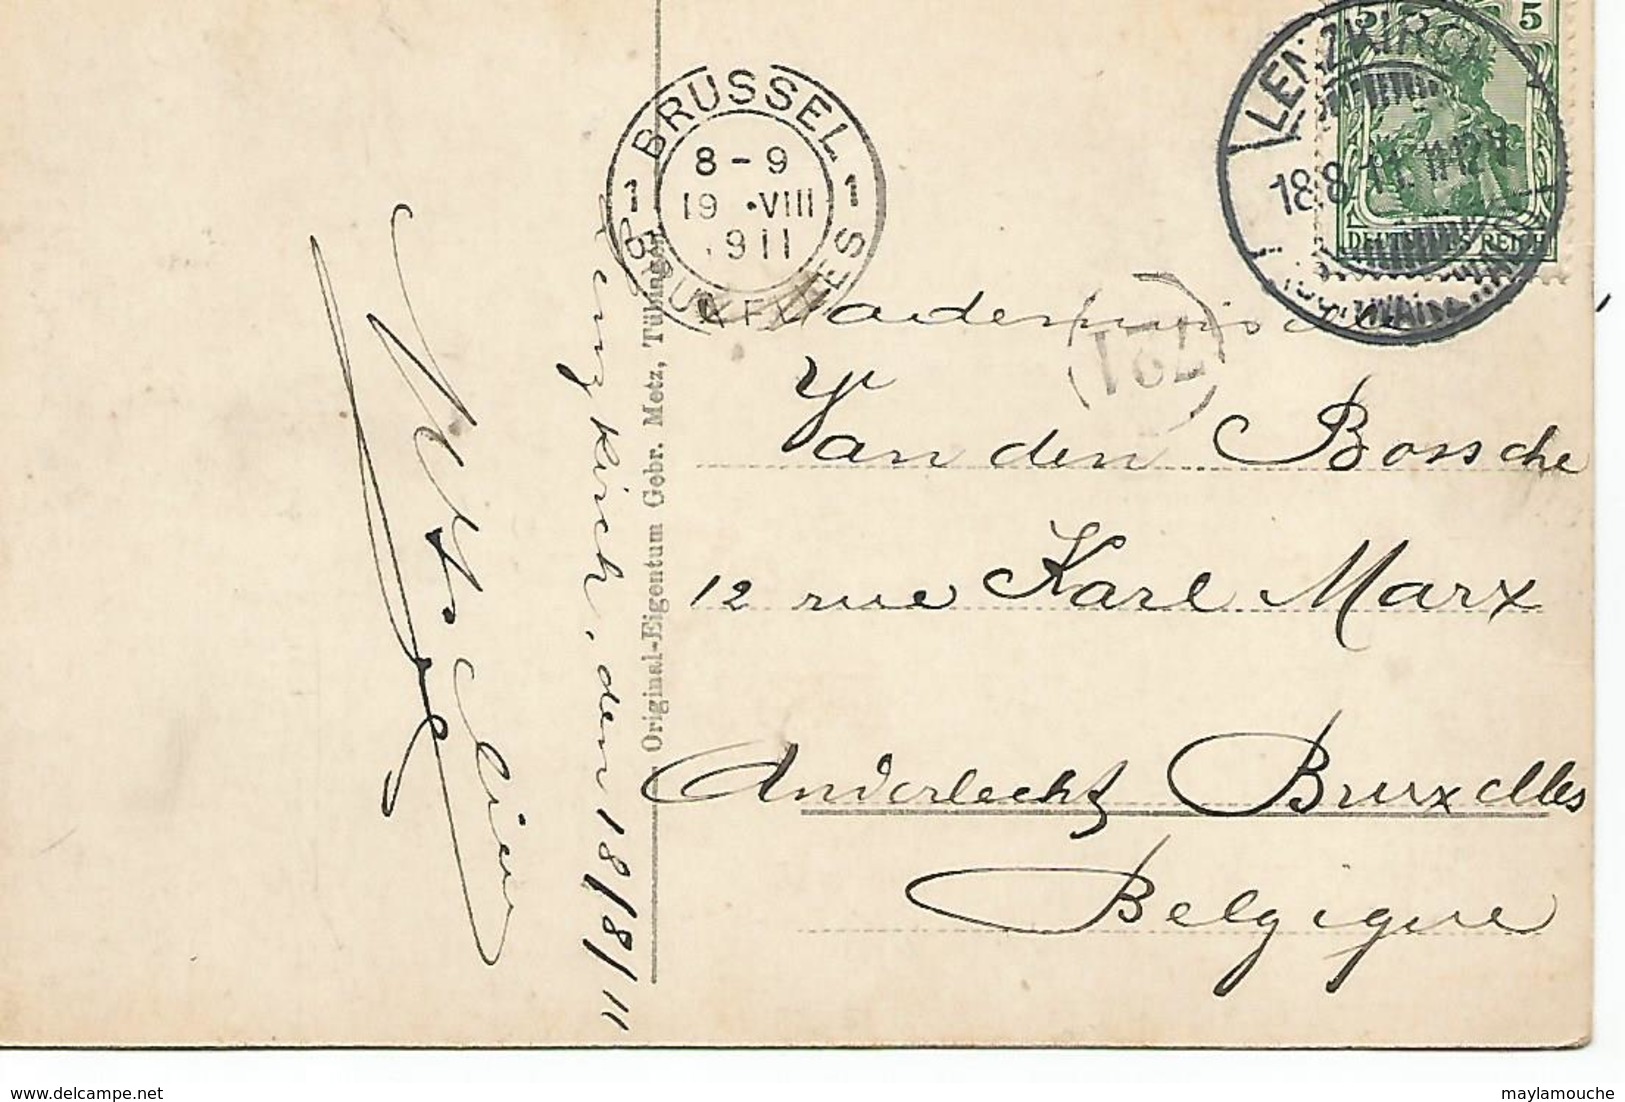 BRUSSEL
1 8-9 1
19 .VIII
1911
BRUXELLES
LENZKIRCH
18.8.11. 11-12 V
5 5
DEUTSCHES REICH
721
Van den Bossche
12 rue Karl Marx
Anderlecht Bruxelles
Belgique
Lenzkirch, den 18/8/11
Original-Eigentum Gebr. Metz, Tübingen
delcampe.net
maylamouche